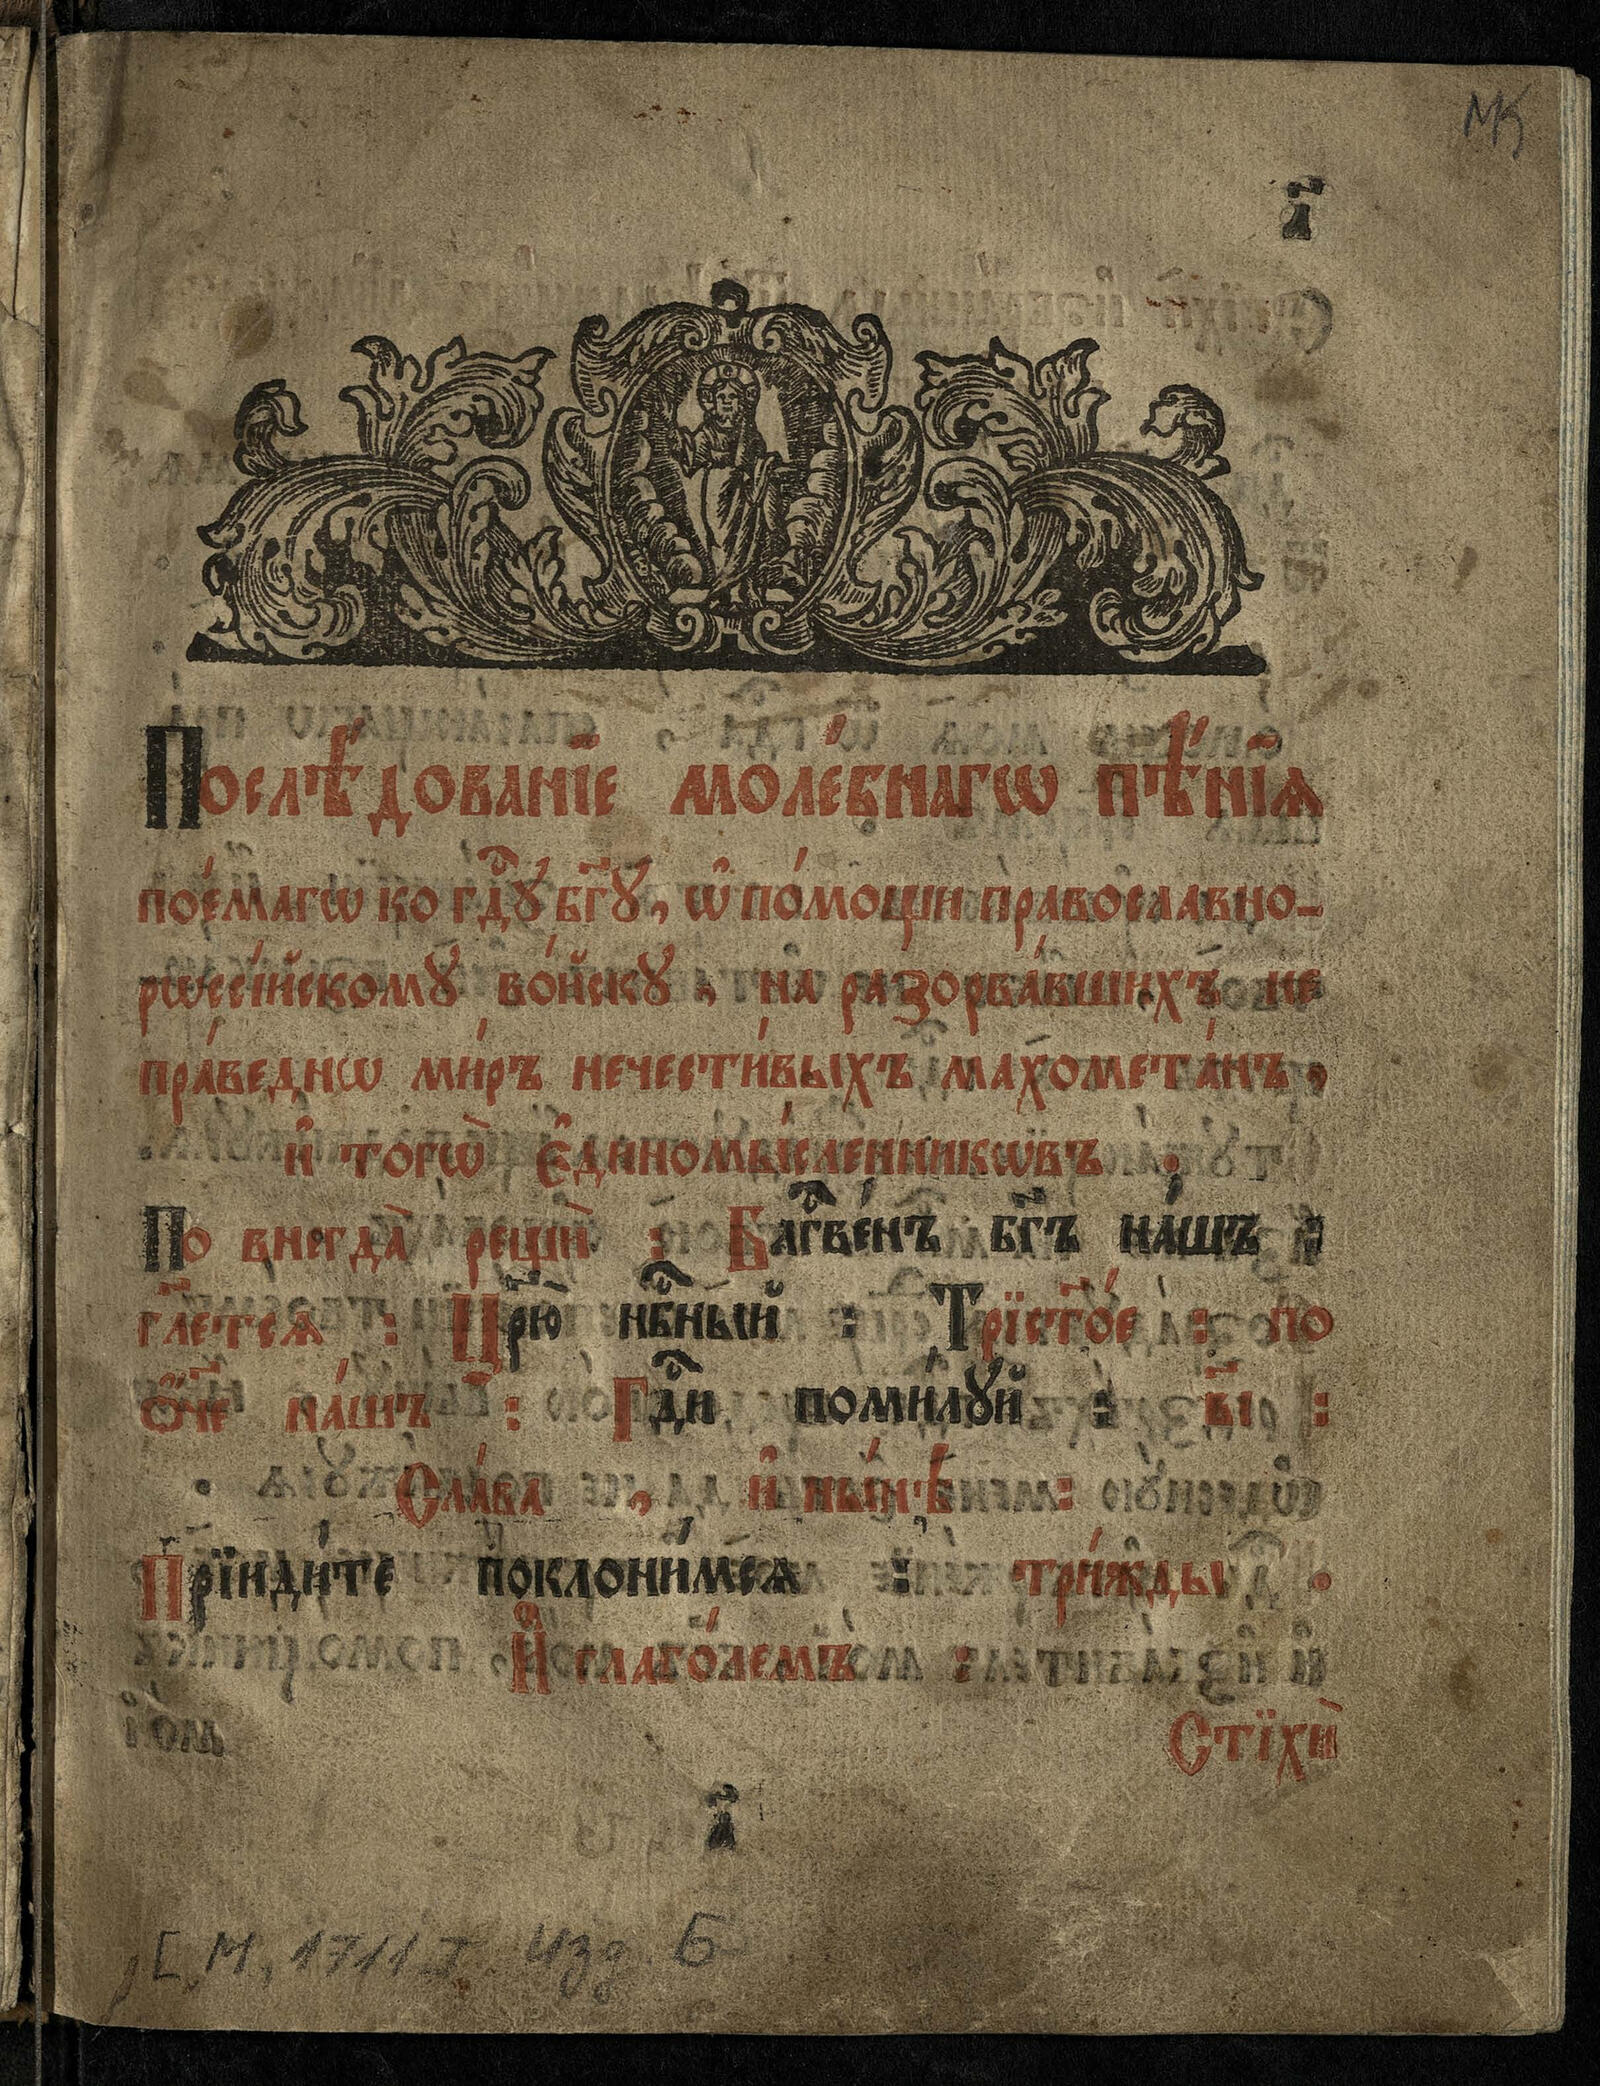 МК
а҃
Послѣ́дованїе моле́бнагѡ пѣ́нїѧ
пое́магѡ ко гдⷭ҇ꙋ бг҃ꙋ, ѡ҆ по́мощи православно-
рѡссі́йскомꙋ во́йскꙋ, на разорва́вшихъ не
пра́веднѡ ми́ръ нечести́выхъ махомета́нъ,
и҆ тогѡ̀ є҆диномы́сленникѡвъ .
По внегда̀ рещѝ : Блг҇ве́нъ бг҃ъ на́шъ :
гл҃етсѧ : Цр҃ю̀ нбⷭ҇ный : Трист҃о́е : по
ѻ҆́ч҃е на́шъ : Гдⷭ҇и поми́лꙋй : в҃і :
Сла́ва , и҆ ны́нѣ :
Прїиди́те поклони́мсѧ : три́жды .
И҆ глаго́лемъ :
Стїхѝ
а҃
[М., 1711]. Изд. Б